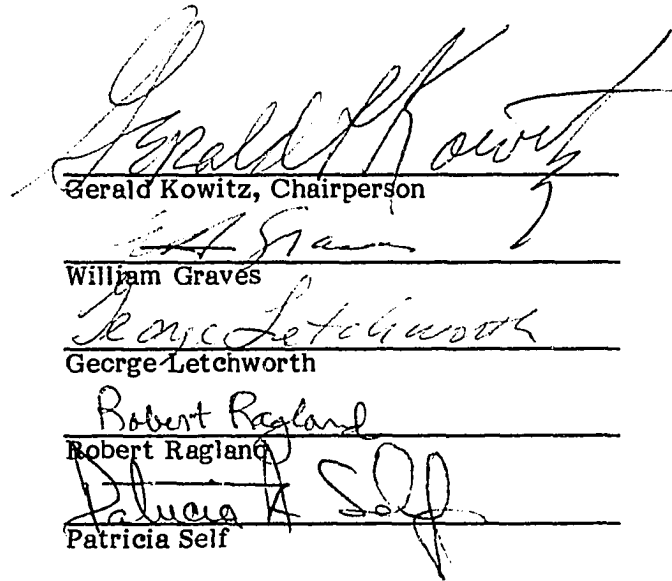 Gerald T Kowitz
Gerald Kowitz, Chairperson
Graves
William Graves
George Letchworth
George Letchworth
Robert Ragland
Robert Ragland
Patricia A Self
Patricia Self